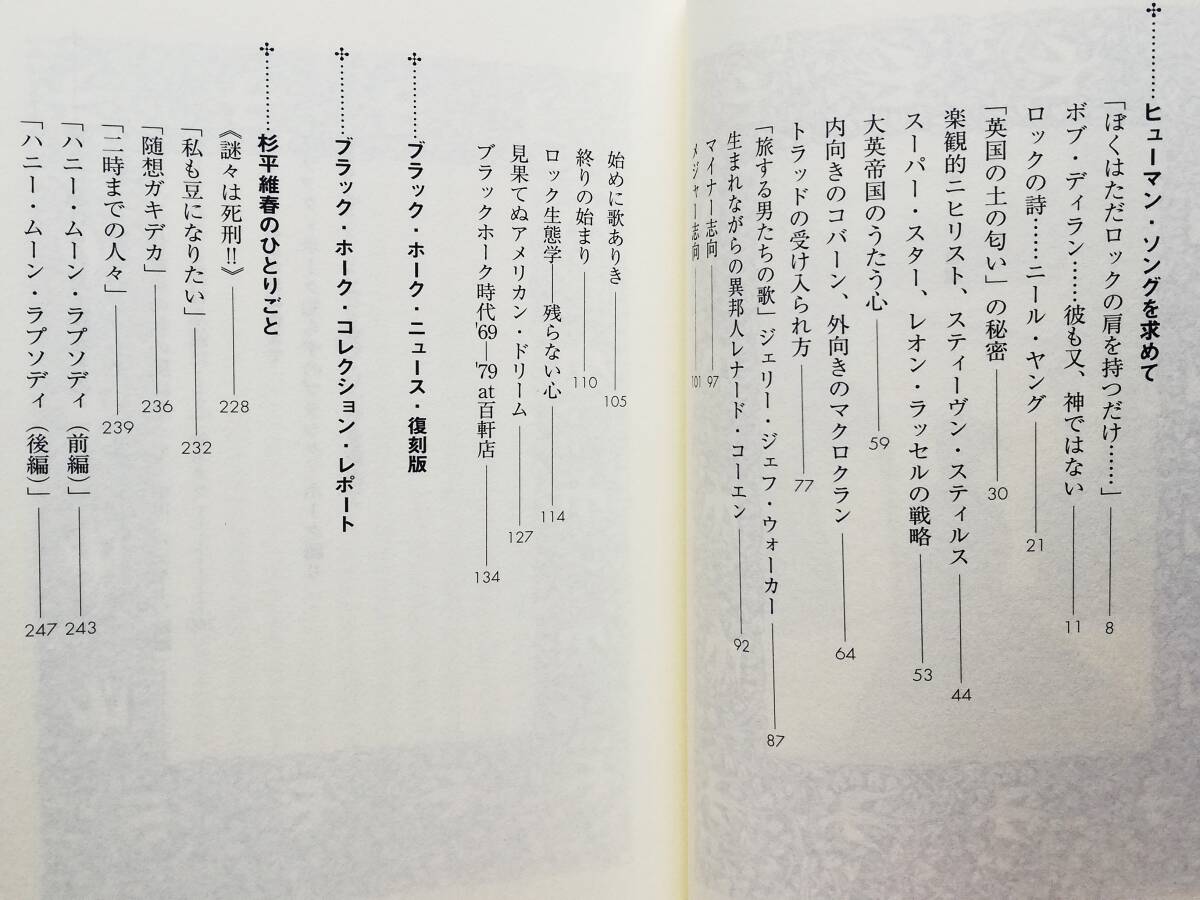 ✣…………ヒューマン・ソングを求めて
「ぼくはただロックの肩を持つだけ……」 8
ボブ・ディラン……彼も又、神ではない 11
ロックの詩……ニール・ヤング 21
「英国の土の匂い」の秘密 30
楽観的ニヒリスト、スティーヴン・スティルス 44
スーパー・スター、レオン・ラッセルの戦略 53
大英帝国のうたう心 59
内向きのコバーン、外向きのマクロクラン 64
トラッドの受け入られ方 77
「旅する男たちの歌」ジェリー・ジェフ・ウォーカー 87
生まれながらの異邦人レナード・コーエン 92
マイナー志向 97
メジャー志向 101
始めに歌ありき 105
終りの始まり 110
ロック生態学——残らない心 114
見果てぬアメリカン・ドリーム 127
ブラックホーク時代'69—'79 at百軒店 134
✣…………ブラック・ホーク・ニュース・復刻版
✣…………ブラック・ホーク・コレクション・レポート
✣…………杉平維春のひとりごと
《謎々は死刑!!》 228
「私も豆になりたい」 232
「随想ガキデカ」 236
「二時までの人々」 239
「ハニー・ムーン・ラプソディ（前編）」 243
「ハニー・ムーン・ラプソディ（後編）」 247